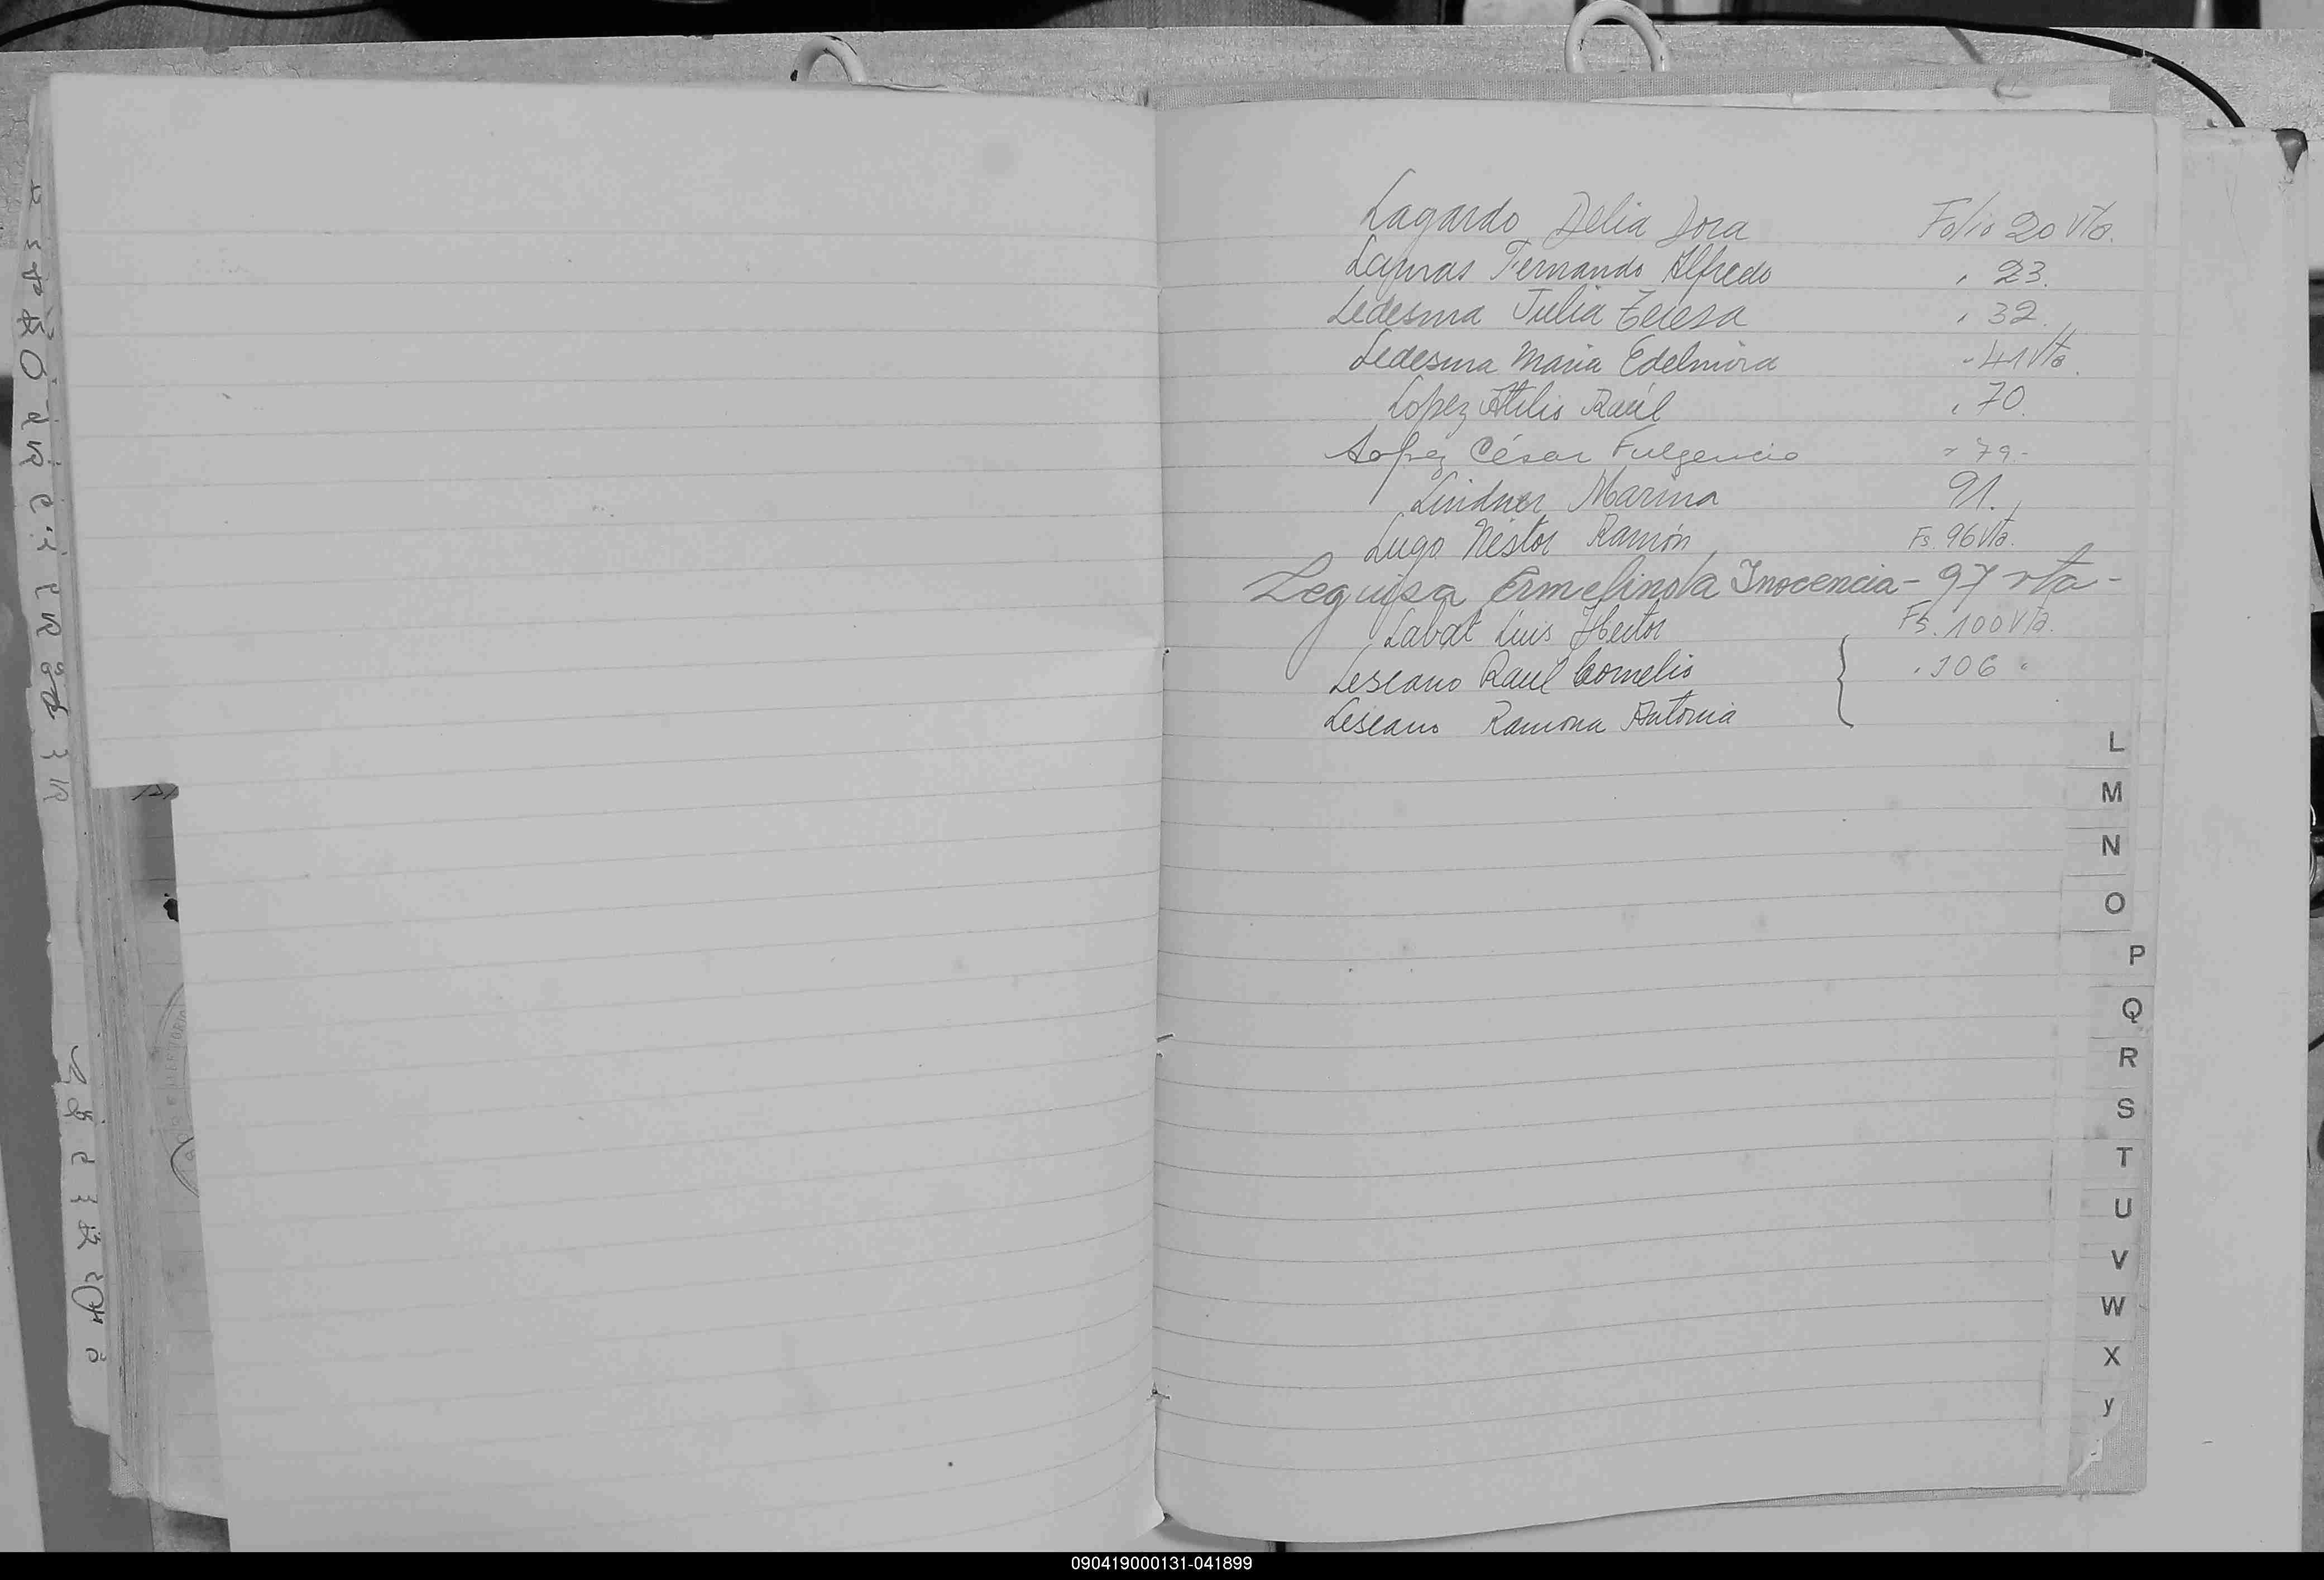 Lagardo Delia Dora Folio 20 Vta.
Fernando Alfredo " 23.
Ledesma Julia Teresa " 32.
Ledesma Maria Edelmira " 41 Vta.
Lopez Atilio Raúl " 70.
Lopez César Fulgencio " 79-
Lindner Marina 91.
Lugo Néstor Ramón Fs. 96 Vta.
Leguisa Ermelinda Inocencia - 97 vta -
Labat Luis Hector Fs. 100 Vta.
Lescano Raul Cornelio " 106 "
Lescano Ramona Antonia
L
M
N
O
P
Q
R
S
T
U
V
W
X
y
090419000131-041899